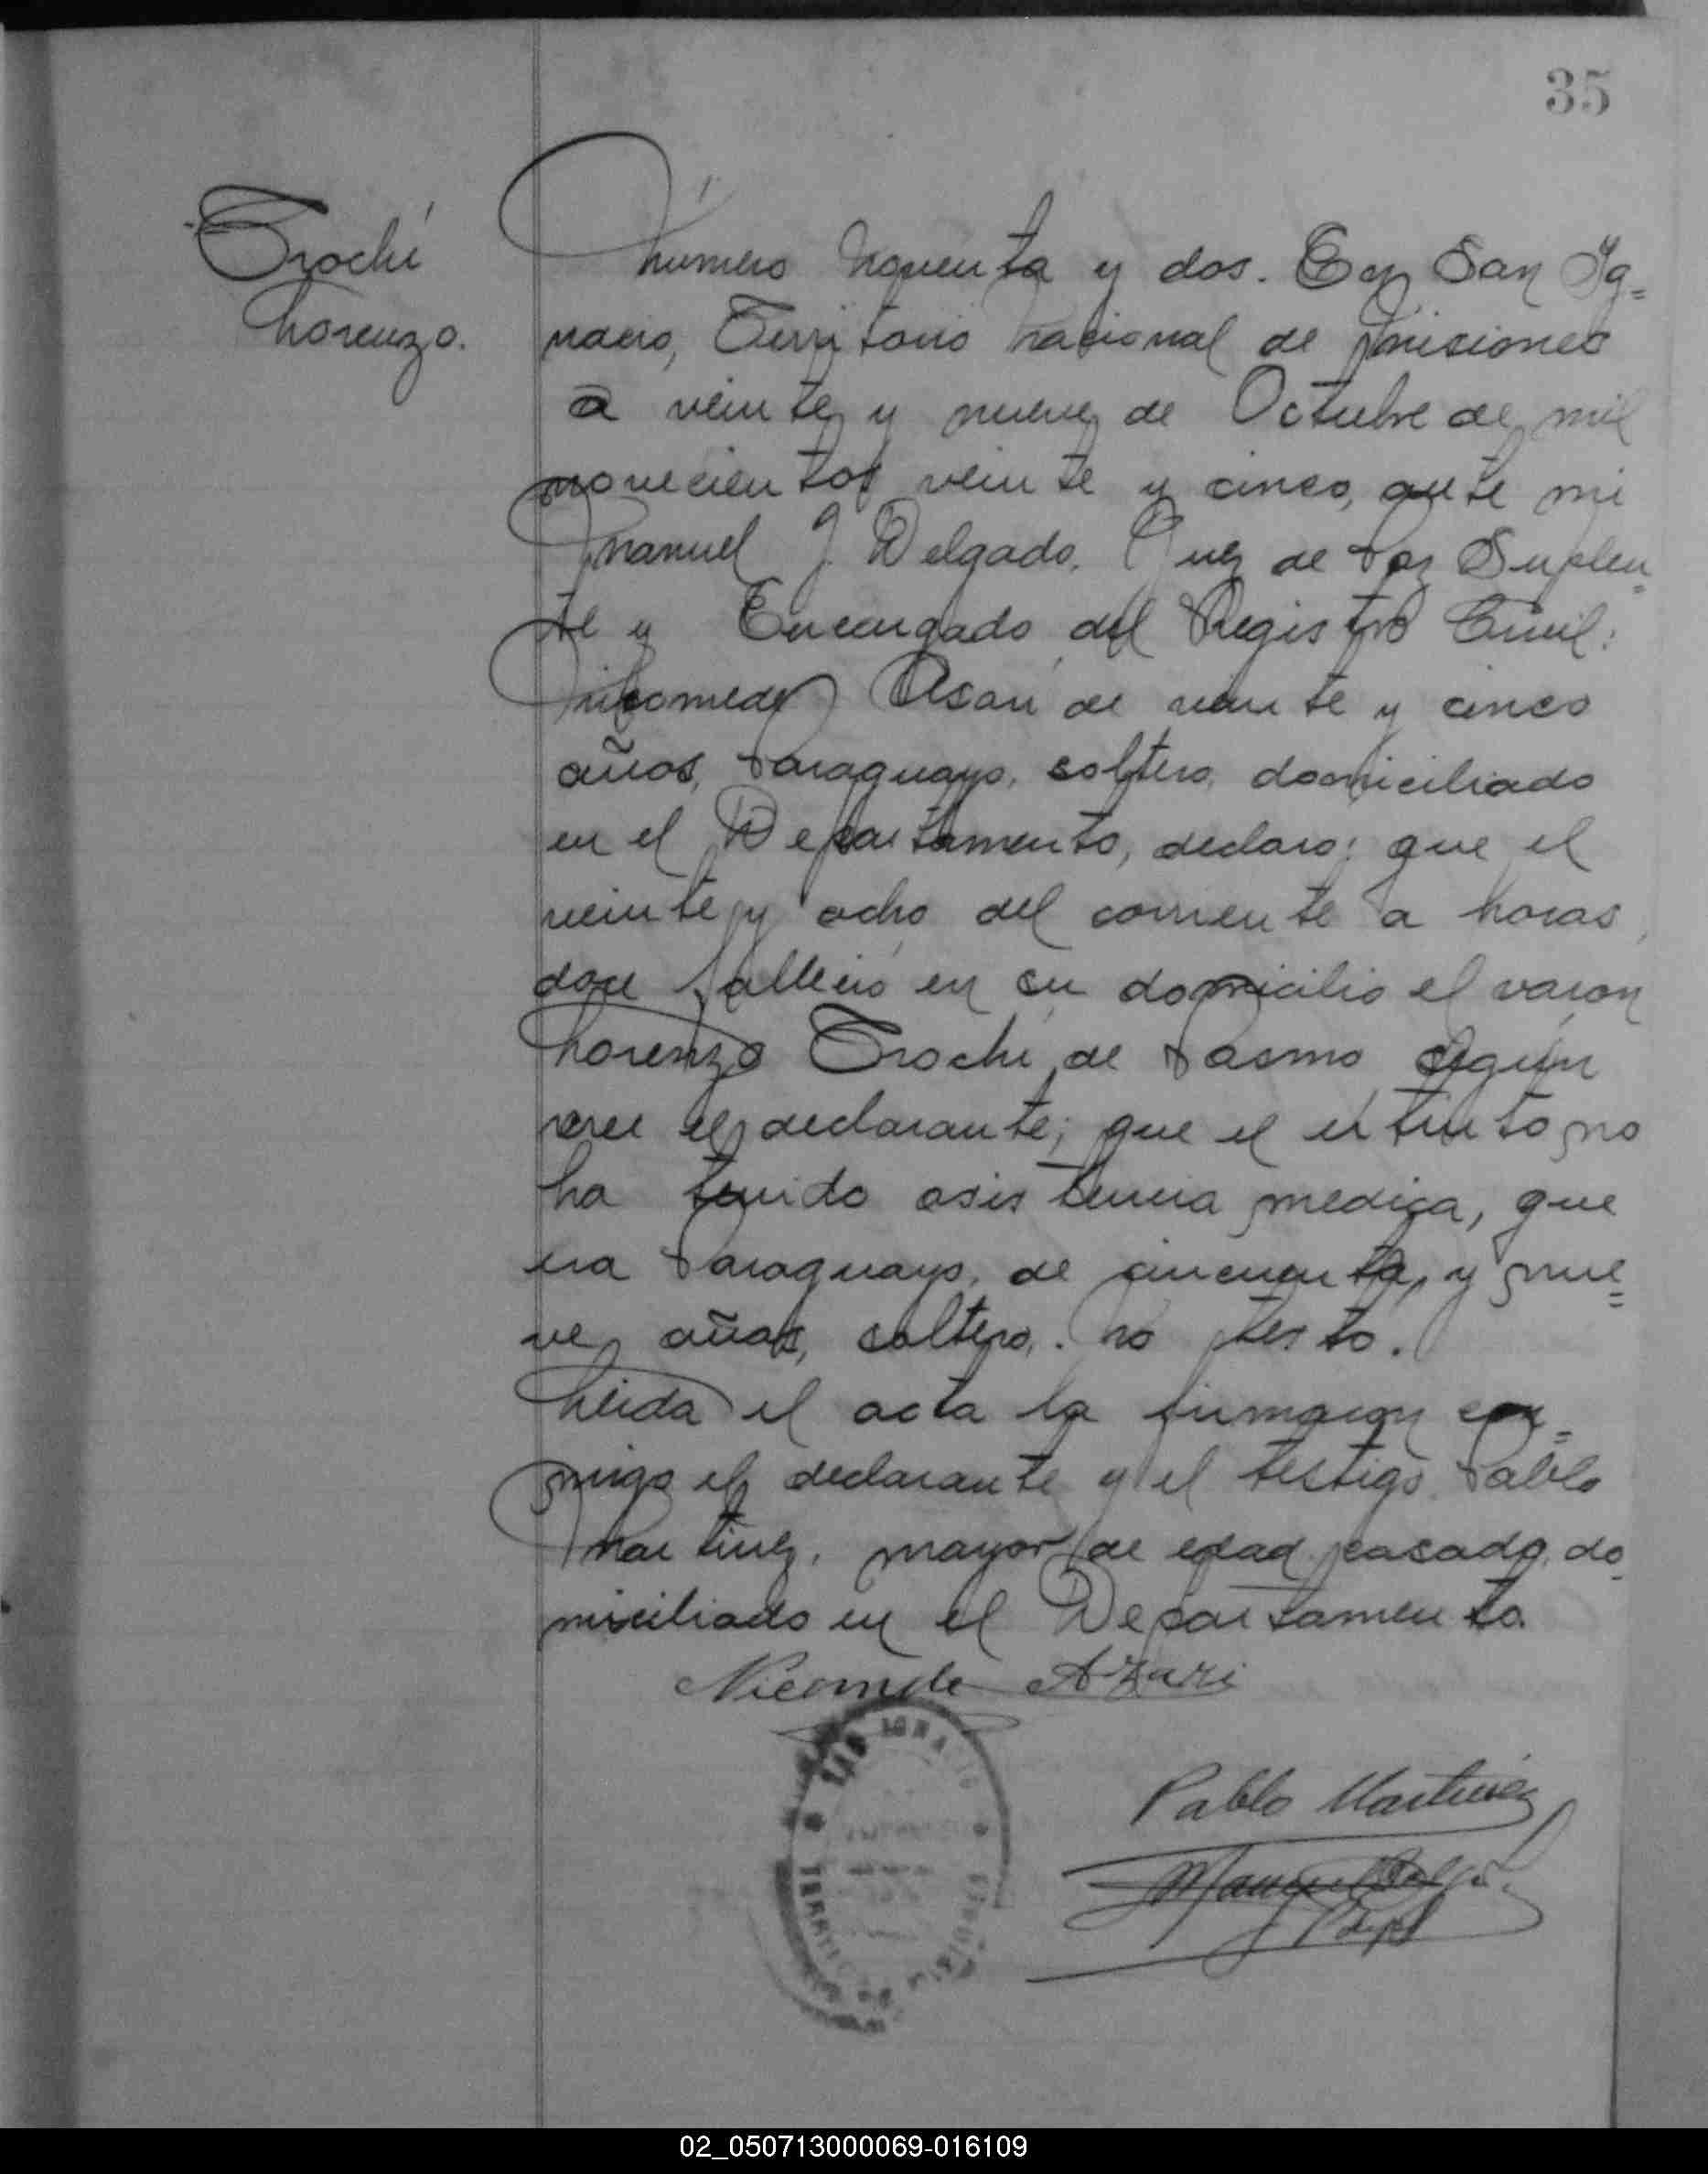 35
Trochí
Lorenzo.
Número Noventa y dos. En San Ig=
nacio, Territorio Nacional de Misiones
a veinte y nueve de Octubre de mil
novecientos veinte y cinco, ante mi
Manuel J. Delgado, Juez de Paz Suplen=
te y Encargado del Registro Civil:
Nicomedes Asari de veinte y cinco
años, Paraguayo, soltero, domiciliado
en el Departamento, declaro: que el
veinte y ocho del corriente a horas
doce falleció en su domicilio el varon
Lorenzo Trochí de Pasmo segun
cree el declarante; que el extinto no
ha tenido asistencia medica, que
era Paraguayo, de cincuenta y nue=
ve años, soltero, no testó.
Leida el acta la firmaron con=
migo el declarante y el testigo Pablo
Martinez, mayor de edad casado, do
miciliado en el Departamento.
Nicomede Azari
SAN IGNACIO
TERRITORIO DE MISIONES
Pablo Martinez
Manuel J Delgado
02_050713000069-016109